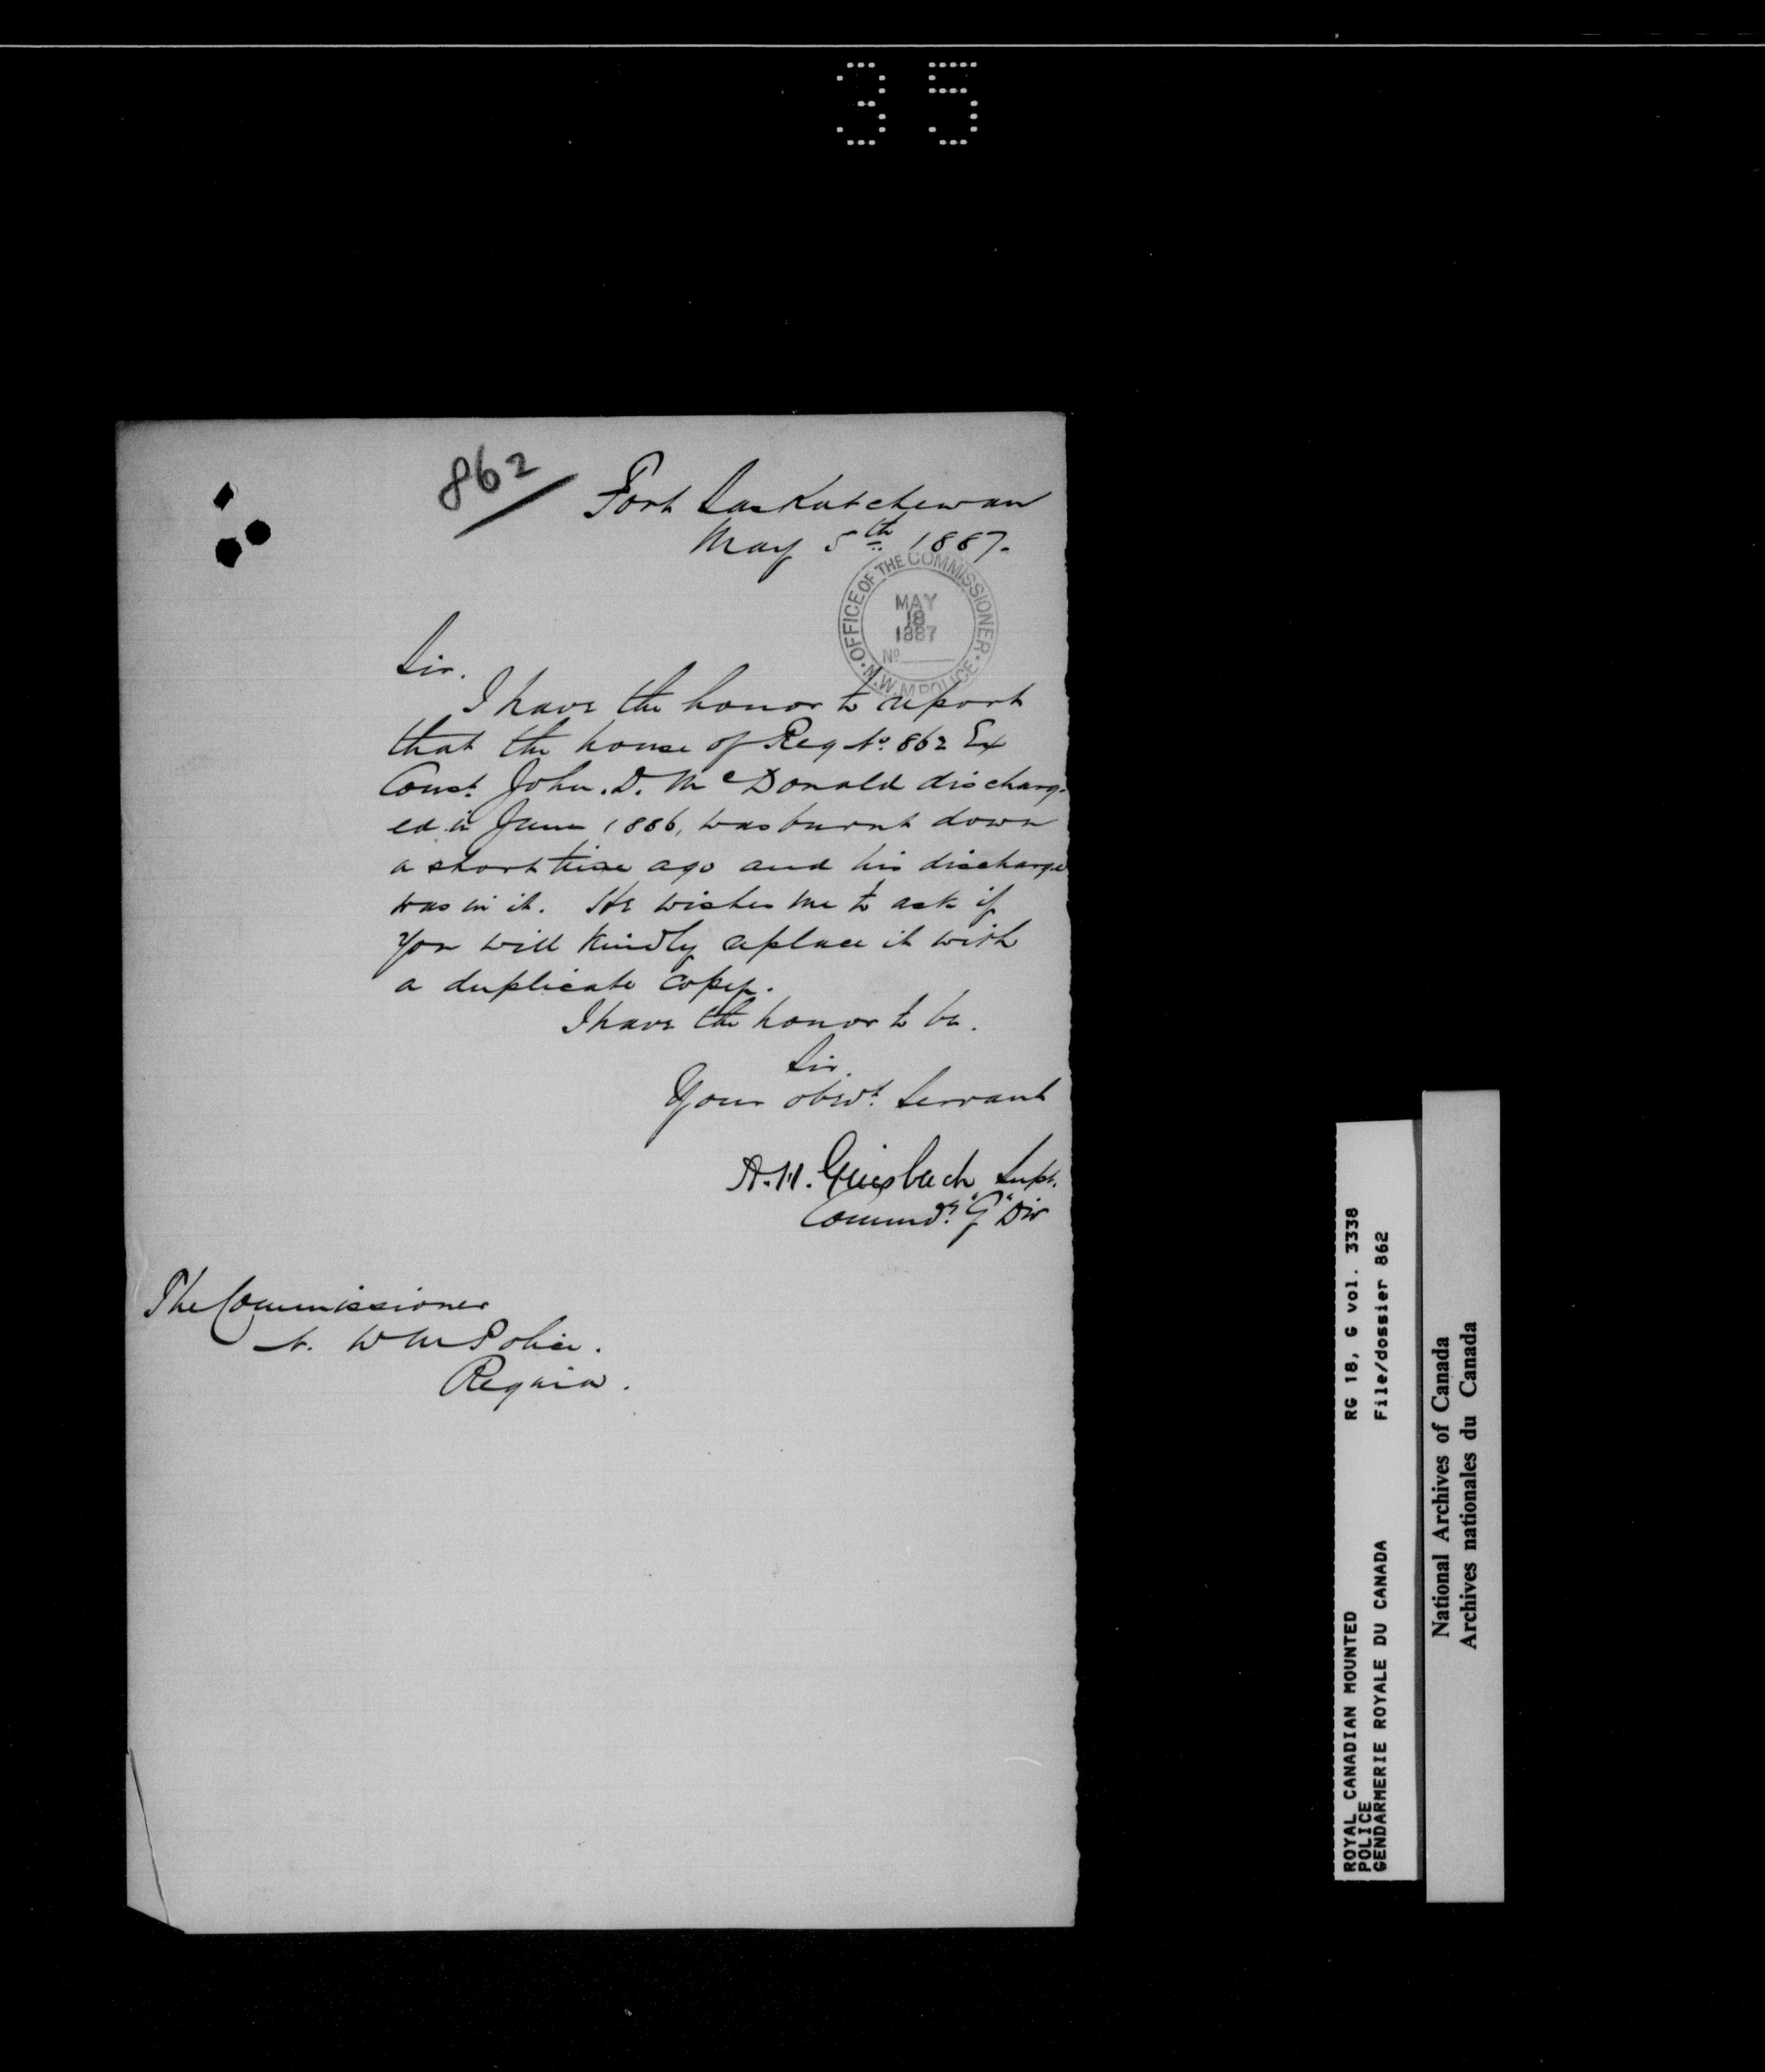 35
862
Fort Saskatchewan
May 5th 1887.
OFFICE OF THE COMMISSIONER
MAY
18
1887
No
N.W.M POLICE
Sir.
I have the honor to report
that the house of Reg No. 862 Ex
Const. John. D. McDonald discharg-
ed in June 1886, was burnt down
a short time ago and his discharge
was in it. He wishes me to ask if
you will kindly replace it with
a duplicate copy.
I have the honor to be.
Sir.
Your obedt. Servant
A.H. Griesbach Supt.
Commdg. "G" Div
The Commissioner
N. W M Police.
Regina.
ROYAL CANADIAN MOUNTED
POLICE
GENDARMERIE ROYALE DU CANADA
RG 18, G vol. 3338
File/dossier 862
National Archives of Canada
Archives nationales du Canada